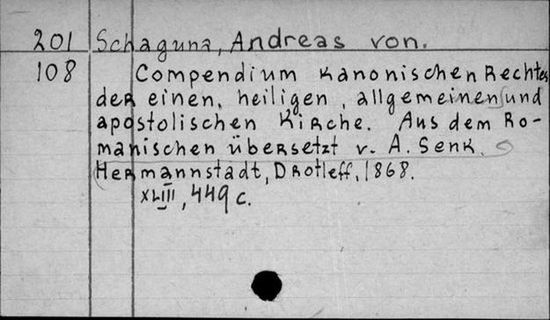 201 Schaguna, Andreas von.
108 Compendium kanonischen Rechtes
der einen, heiligen, allgemeinen und
apostolischen Kirche. Aus dem Ro-
manischen übersetzt v. A. Senk.
Hermannstadt, Drotleff, 1868.
XLIII, 449 c.